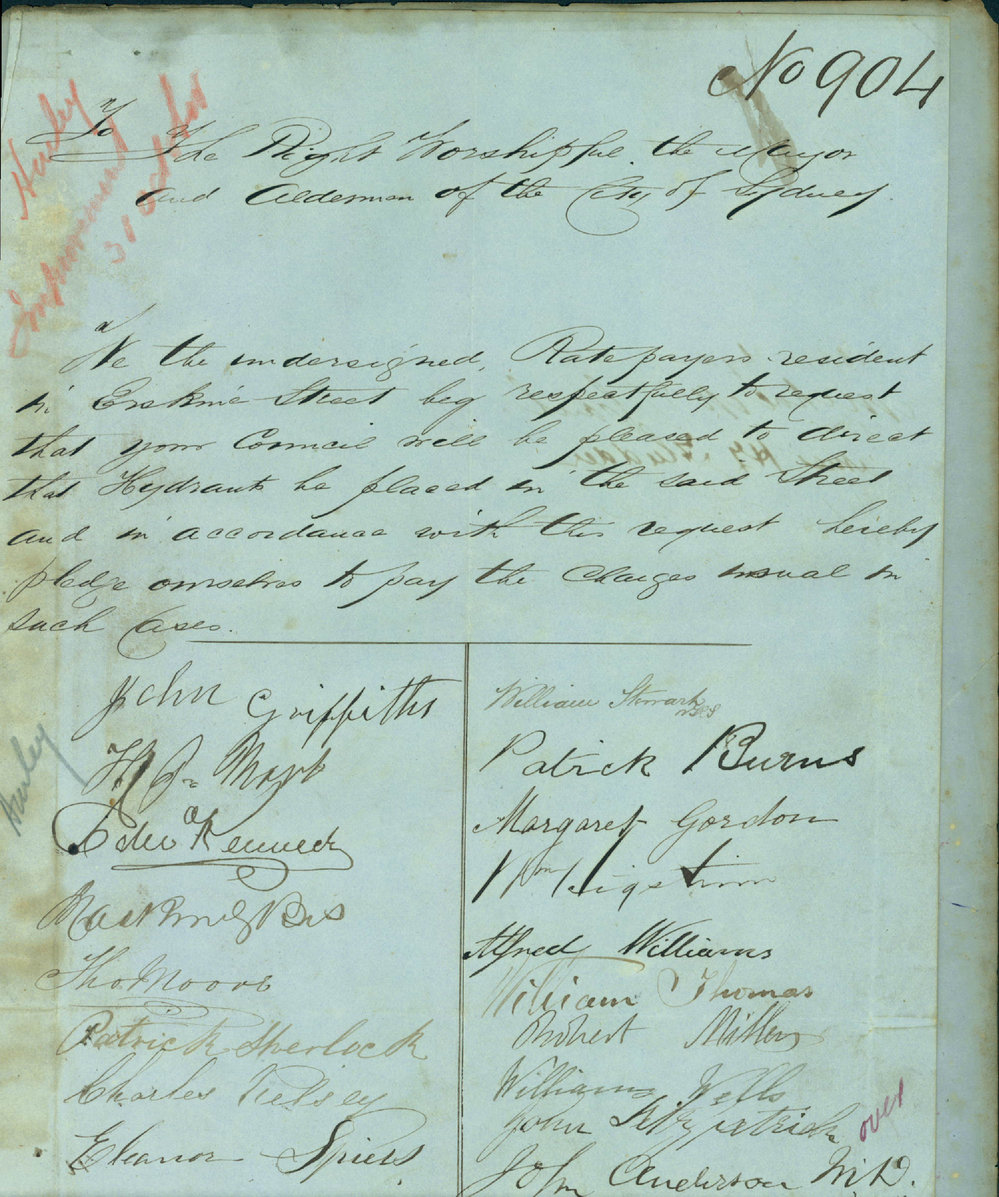 No 904
To
The Right Worshipful the Mayor
and Aldermen of the City of Sydney
We the undersigned, Ratepayers resident
in Erskine Street beg respectfully to request
that your Council will be pleased to direct
that Hydrants be placed in the said Street
and in accordance with this request hereby
pledge ourselves to pay the Charges usual in
such Cases.
John Griffiths
Thos Moore
Patrick Sherlock
Charles Kelsey
Eleanor Spiers
William
Patrick Burns
Margaret Gordon
Wm
Alfred Williams
William Thomas
Robert Miller
William Wells
John Fitzpatrick
over
John Anderson M.D.